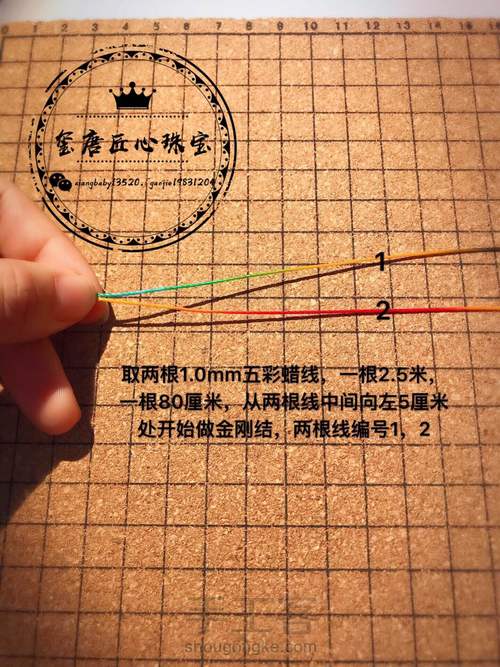 0 1 2 3 4 5 6 7 8 9 10 11 12 13 14 15
玺唐匠心珠宝
1
2
取两根1.0mm五彩蜡线，一根2.5米，
一根80厘米，从两根线中间向左5厘米
处开始做金刚结，两根线编号1，2
shougongke.com